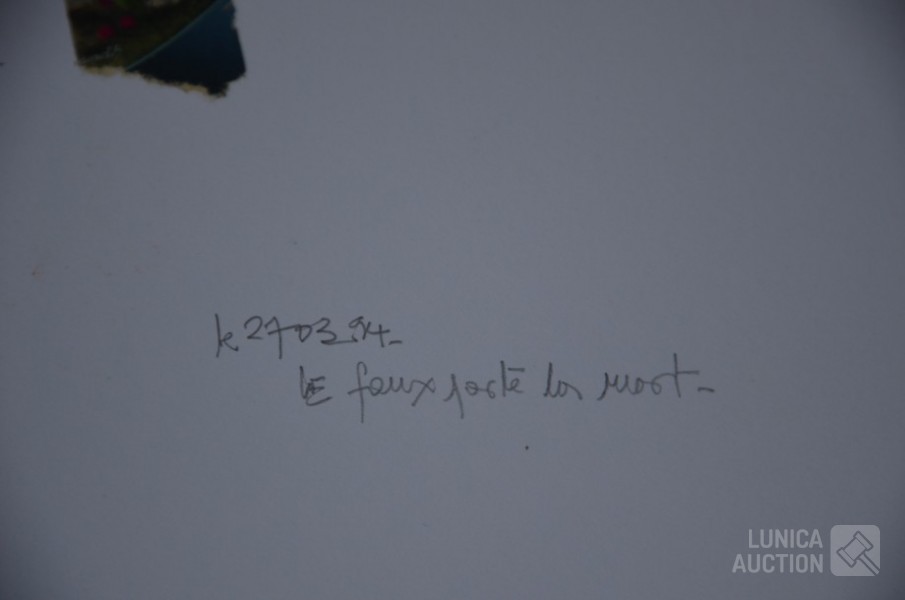 le 27.03.94_
LE faux porte la mort_
LUNICA
AUCTION